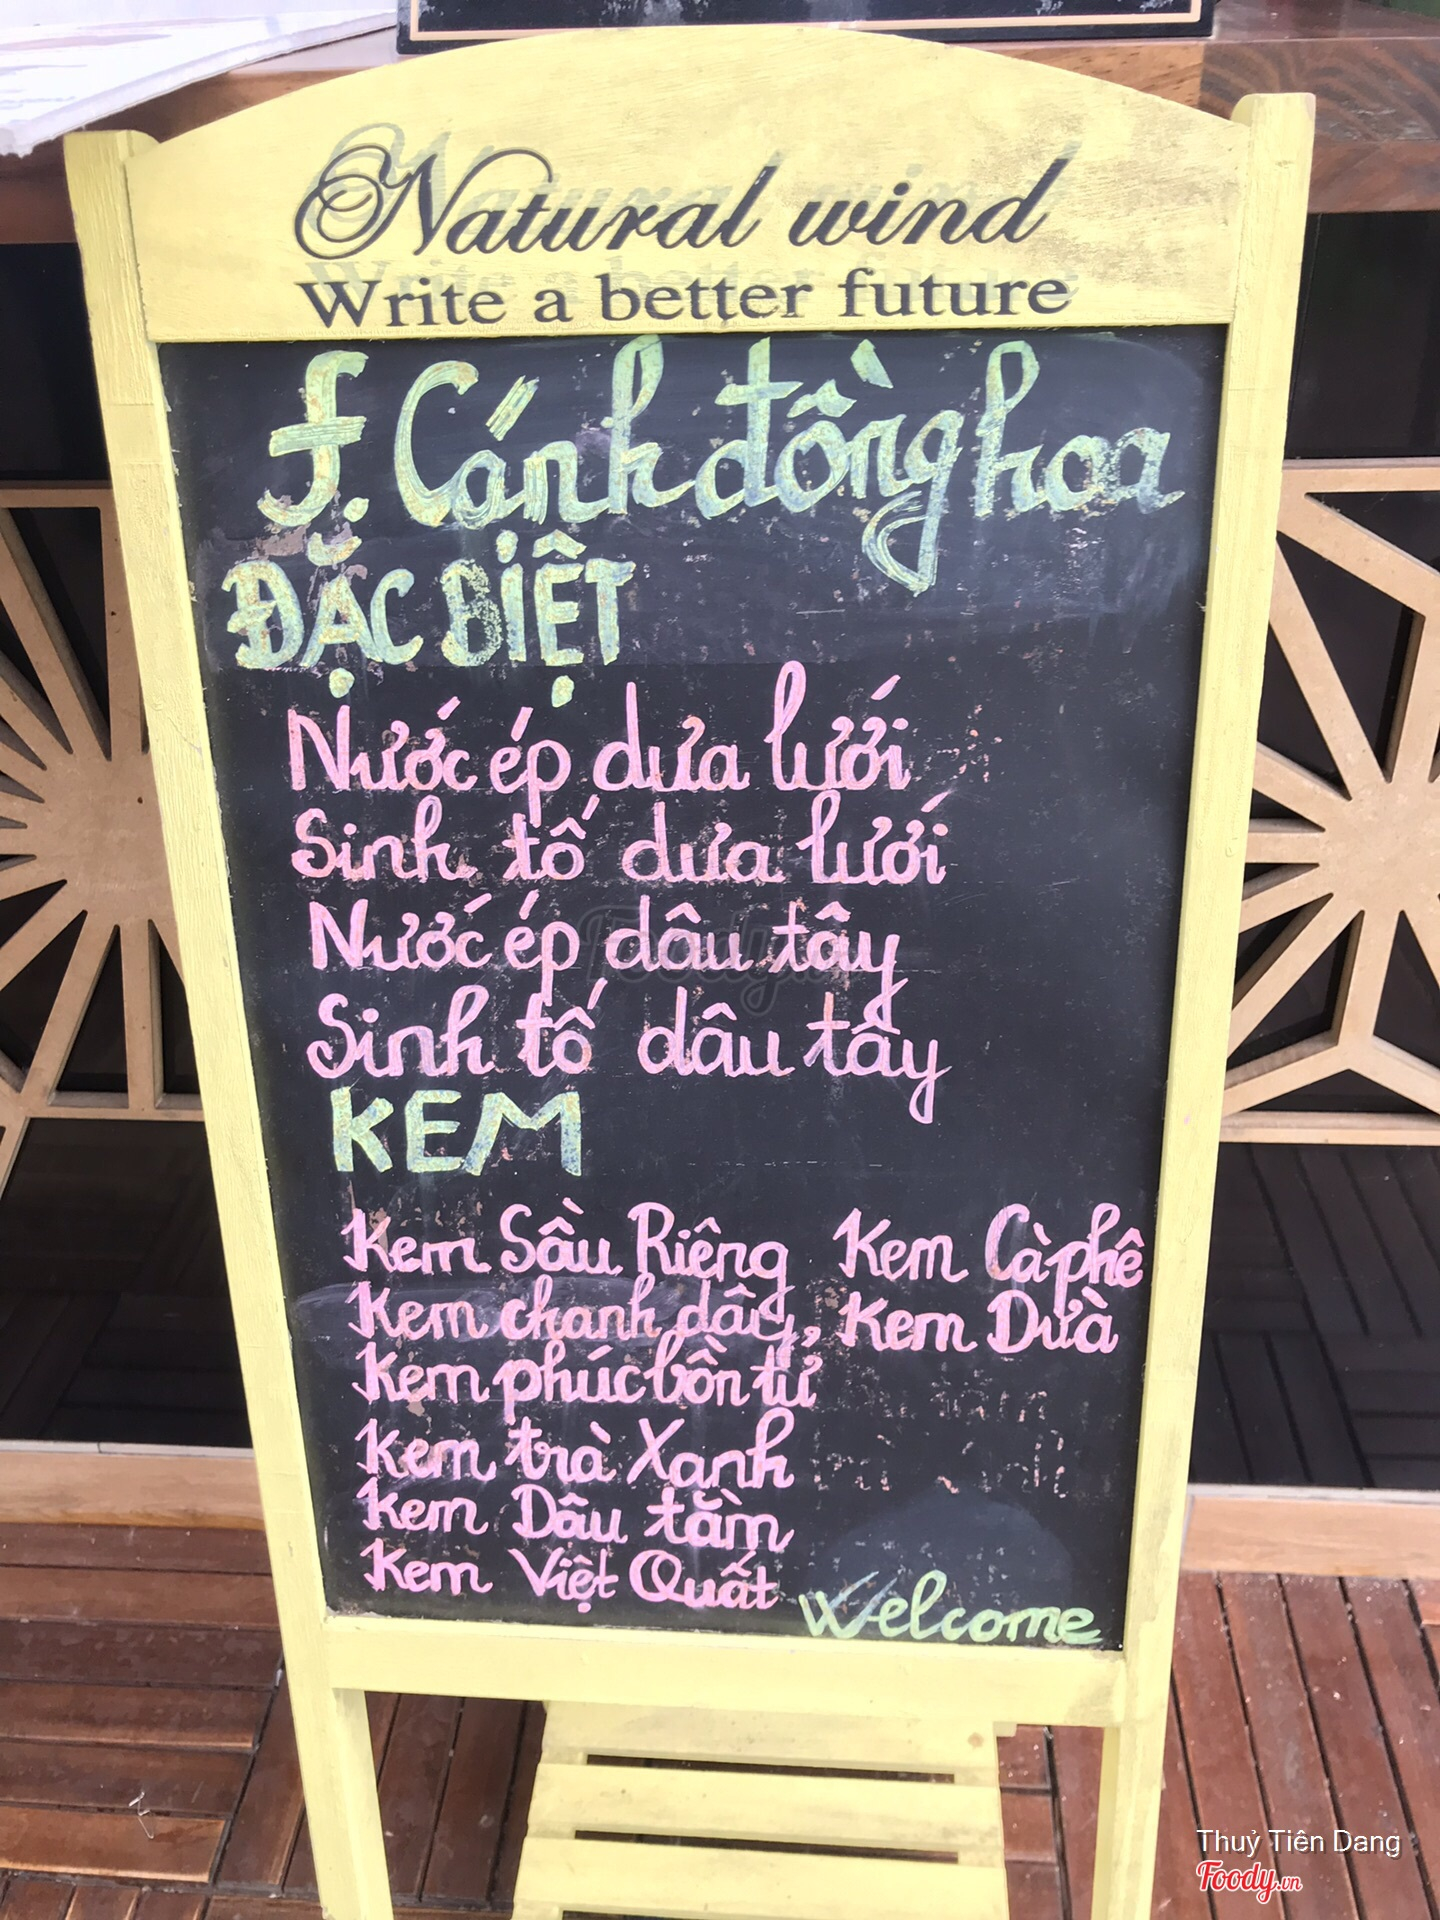 Natural wind
Write a better future
F. Cánh đồng hoa
ĐẶC BIỆT
Nước ép dưa lưới
Sinh tố dưa lưới
Nước ép dâu tây
Sinh tố dâu tây
KEM
Kem Sầu Riêng Kem Cà phê
Kem chanh dây, Kem Dừa
Kem phúc bồn tử
Kem trà Xanh
Kem Dâu tằm
Kem Việt Quất
Welcome
Foody
Thuỷ Tiên Dang
Foody.vn